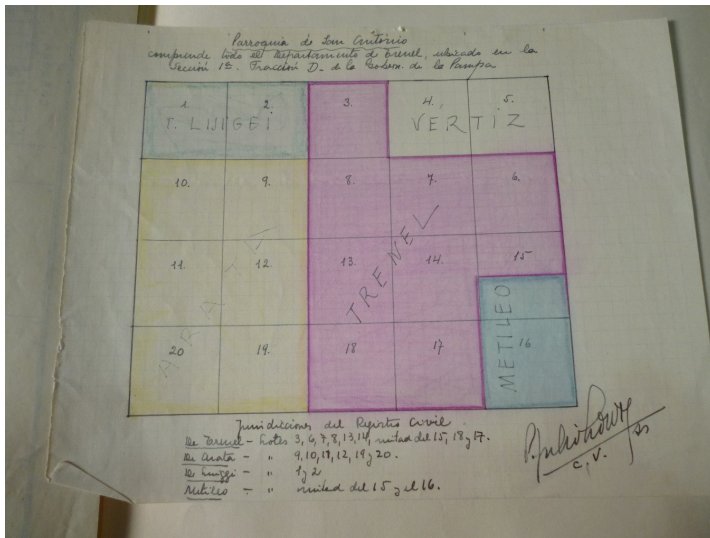 Parroquia de San António
comprende todo el Departamento de Trenel, ubicado en la
Sección 1ª. Fracción D- de la Gobern. de la Pampa
1. 2. 3. 4. 5.
T. LUIGEI VERTIZ
10. 9. 8. 7. 6.
ARATA TRENEL
11. 12. 13. 14. 15
METILEO
20 19. 18 17 16
Jurisdicciones del Registro Civil.
De Trenel - Lotes 3, 6, 7, 8, 13, 14, mitad del 15, 18 y 17.
De Arata - " 9, 10, 11, 12, 19 y 20.
De Luiggi - " 1 y 2
Metileo - " mitad del 15 y el 16.
C. V.